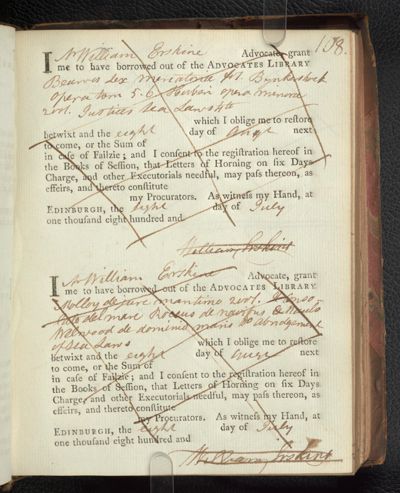 158.
I Mr William Erskine Advocate, grant
me to have borrowed out of the ADVOCATES LIBRARY
Beawes Lex Mercatoria fol. Bynkershoek
opera tom 5. 6. Heineccii opera minora
2 vol. Justices Sea Laws 4to
which I oblige me to reſtore
betwixt and the eight day of Augt next
to come, or the Sum of
in caſe of Failzie; and I conſent to the regiſtration hereof in
the Books of Seſſion, that Letters of Horning on ſix Days
Charge, and other Executorials needful, may paſs thereon, as
effeirs, and thereto conſtitute
my Procurators. As witneſs my Hand, at
EDINBURGH, the eight day of July
one thouſand eight hundred and
William Erskine
I Mr William Erskine Advocate, grant
me to have borrowed out of the ADVOCATES LIBRARY
Molloy de jure maritimo 2 vol. Conso-
lato del mare Roccus de navibus &
Welwood de dominio maris & Abridgement
of Sea Laws which I oblige me to reſtore
betwixt and the eight day of Augt next
to come, or the Sum of
in caſe of Failzie; and I conſent to the regiſtration hereof in
the Books of Seſſion, that Letters of Horning on ſix Days
Charge, and other Executorials needful, may paſs thereon, as
effeirs, and thereto conſtitute
my Procurators. As witneſs my Hand, at
EDINBURGH, the eight day of July
one thouſand eight hundred and
William Erskine